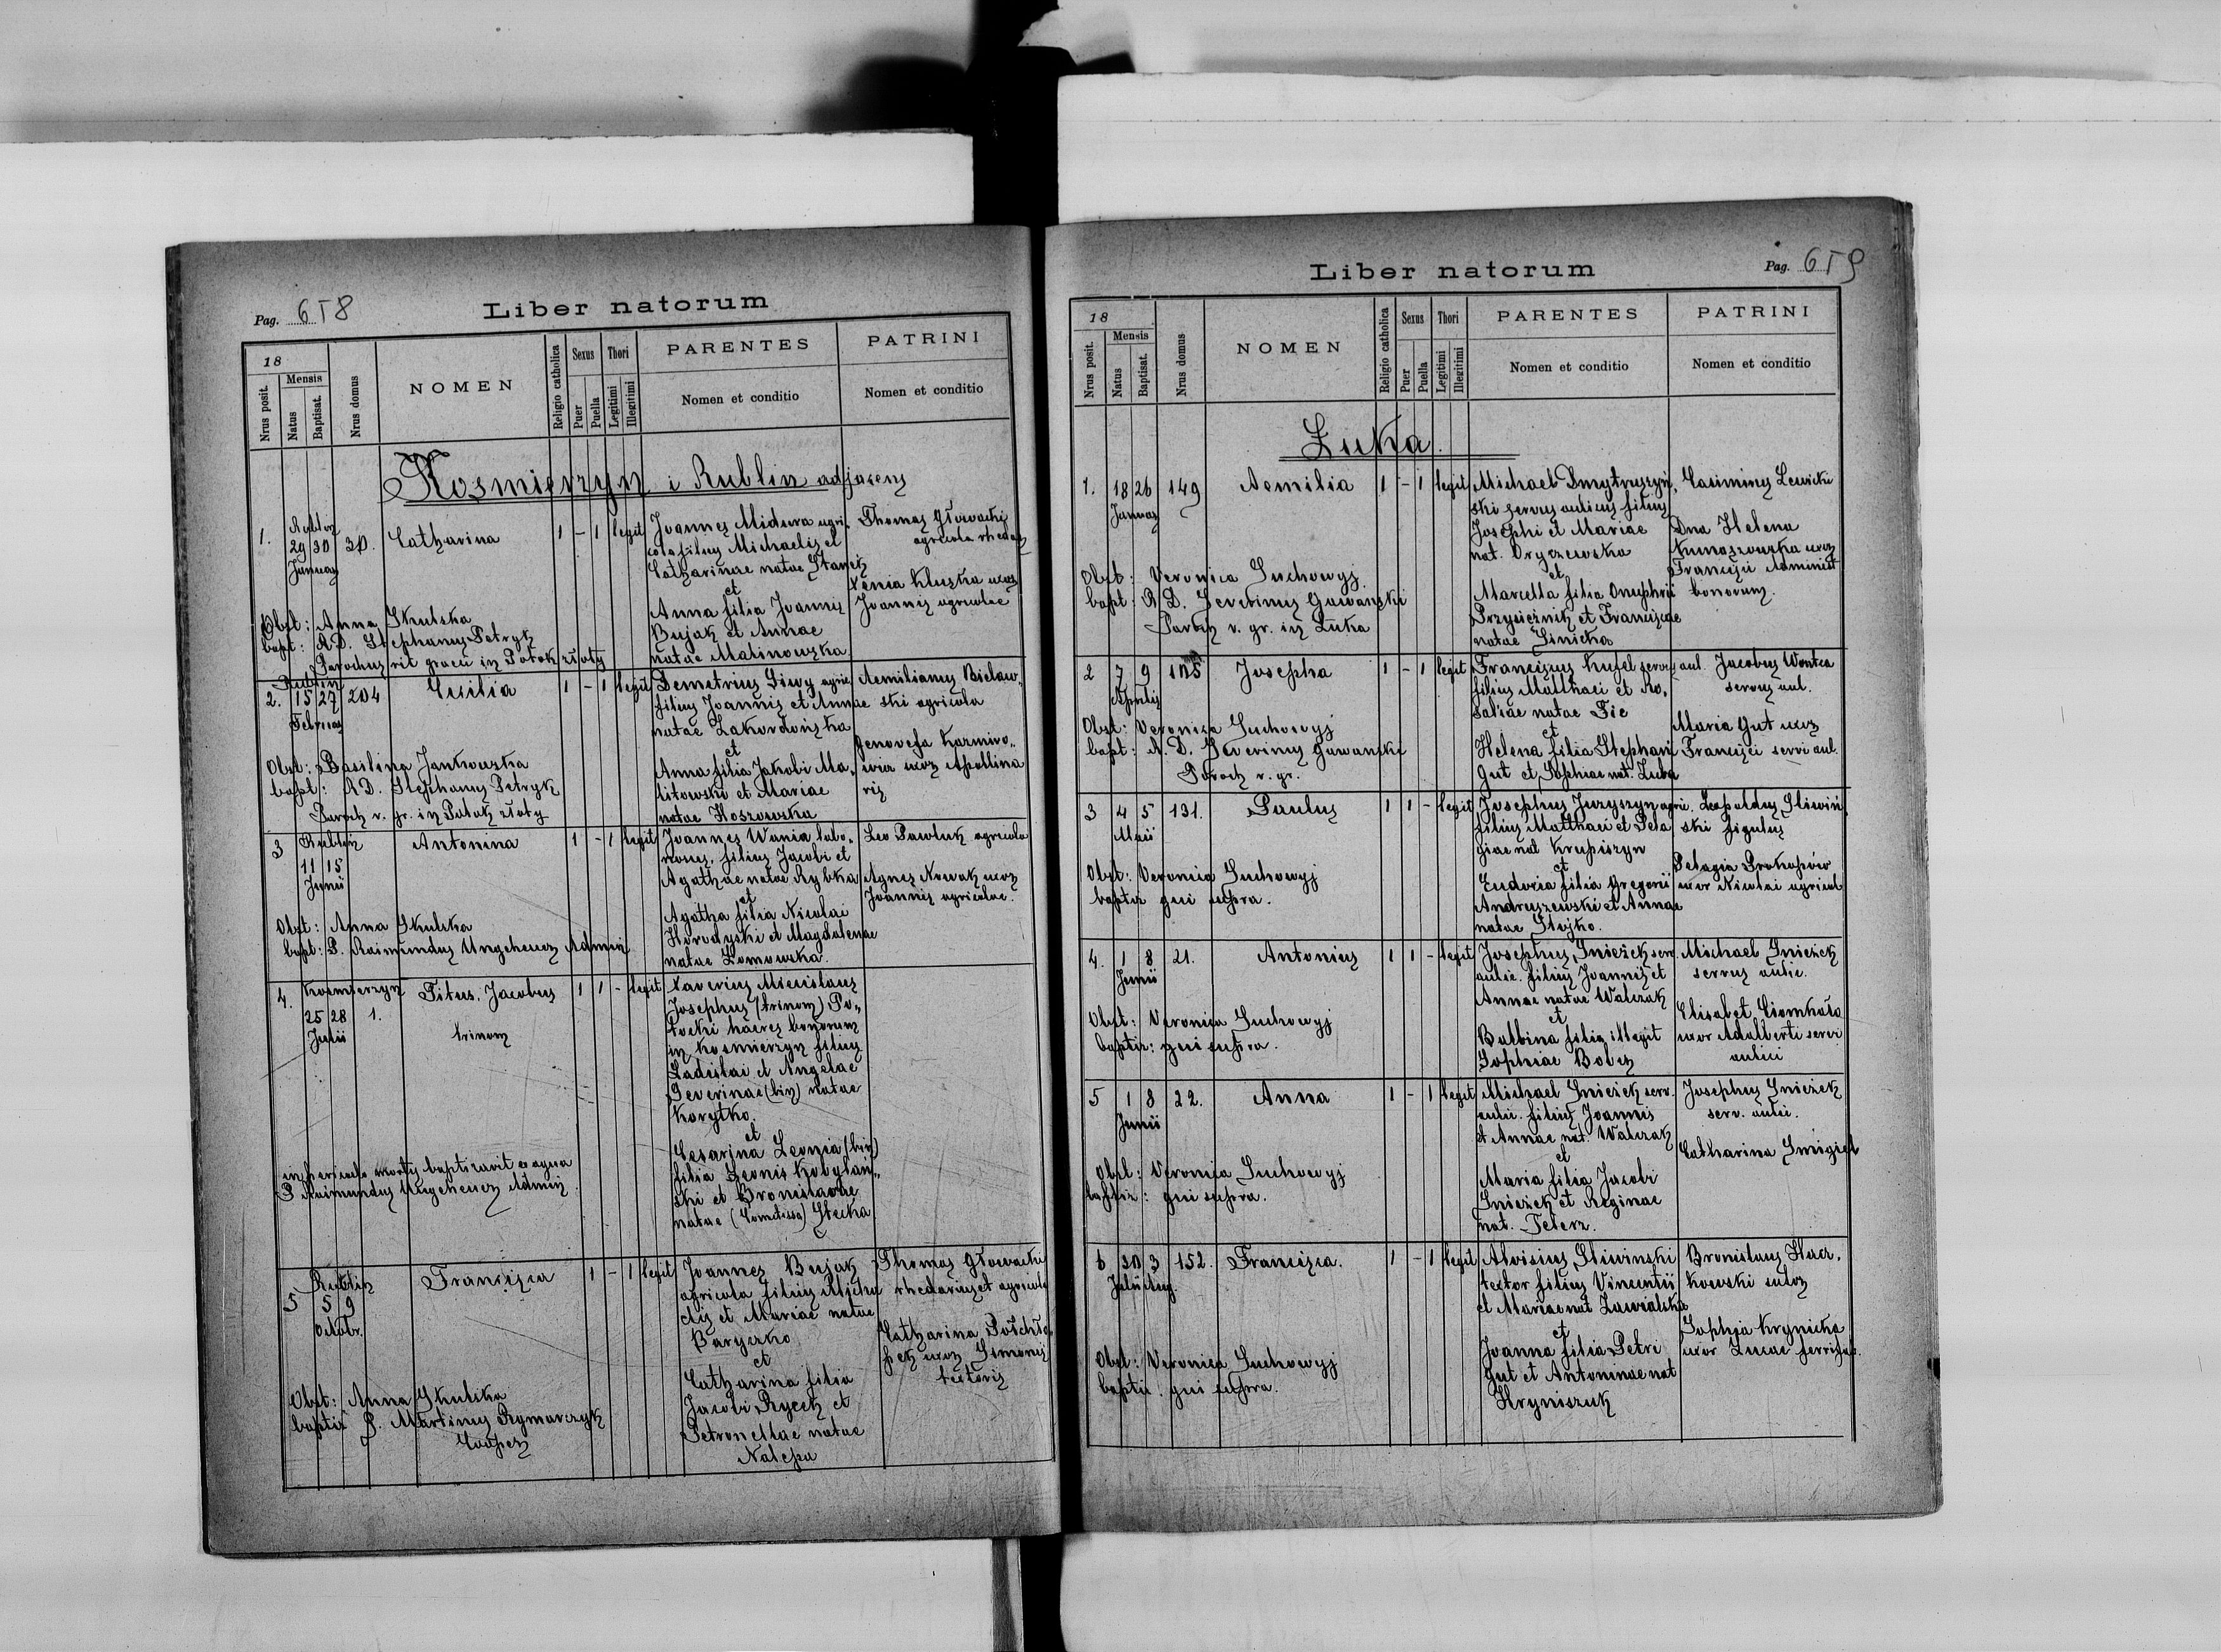 Pag. 658
Liber natorum
18
Nrus posit.
Mensis
Natus
Baptisat.
Nrus domus
NOMEN
Religio catholica
Sexus
Puer
Puella
Thori
Legitimi
Illegitimi
PARENTES
Nomen et conditio
PATRINI
Nomen et conditio
Kosmierzyn i Rublin adjacens
1.
Rublin
29 30
Januar
30.
Catharina
1 - 1 legit
Joannes Midura agri-
cola filius Michaelis et
Catharinae natae Stanek
et
Anna filia Joannis
Bujak et Annae
natae Malinowska
Thomas Głowacki
agricola rhedar
Xenia Kluska uxor
Joannis agricolae
Obst: Anna Skulska
bapt: R.D. Stephanus Petryk
Parochus rit graeci in Potok złoty
2.
Rublin
15 27
Februar
204
Cecilia
1 - 1 legit
Demetrius Siwy agric
filius Joannis et Annae
natae Zakordońska
et
Anna filia Jakobi Ma-
litowski et Mariae
natae Koszowska
Aemilianus Bielaw-
ski agricola
Genovefa Kazmiro-
wia uxor Apollina
ris
Obst: Basilina Jankowska
bapt: R.D. Stephanus Petryk
Paroch r. gr. in Potok złoty
3
Rublin
11 15
Junii
Antonina
1 - 1 legit
Joannes Wania labo-
rosus, filius Jacobi et
Agathae natae Rybka
et
Agatha filia Nicolai
Horodyski et Magdalenae
natae Zomowska.
Leo Pawluk agricola
Agnes Nowak uxor
Joannis agricolae.
Obst: Anna Skulska
bapt: P. Raimundus Ungeheuer Admin
4.
Kosmierzyn
25 28
Julii
1.
Titus, Jacobus
trinom
1 1 - legit
Xaverius Miecislaus
Josephus (trinom) Po-
tocki haeres bonorum
in Kosmierzyn filius
Ladislai et Angelae
Severinae (bin) natae
Korytko.
et
Cesarina Leonia (bin)
filia Leonis Kobylań-
ski et Bronislavae
natae (Comitissa) Stecka
in periculo mortis baptizavit ex aqua
P. Raimundus Ungeheuer Admin
5
Rublin
5 9
Octobr.
Francisca
1 - 1 legit
Joannes Bujak
agricola filius Micha
elis et Mariae natae
Baryczko
et
Catharina filia
Jacobi Rycek et
Petronellae natae
Nalepa
Thomas Głowacki
rhedarius et agricola
Catharina Półchło-
pek uxor Simonis
tectoris
Obst: Anna Skulska
baptiz P. Martinus Rymarczyk
Cooper
Liber natorum
Pag. 659
18
Nrus posit.
Mensis
Natus
Baptisat.
Nrus domus
NOMEN
Religio catholica
Sexus
Puer
Puella
Thori
Legitimi
Illegitimi
PARENTES
Nomen et conditio
PATRINI
Nomen et conditio
Łuka.
1.
18 26
Januar
149
Aemilia
1 - 1 legit
Michael Dmytruszyń-
ski servus aulicus filius
Josephi et Mariae
nat. Oryszewska
et
Marcella filia Onuphrii
Przysiężnik et Franciscae
natae Sinicka
Casimirus Lewicki
Dna Helena
uxor
Francisci Administ
bonorum.
Obst: Veronica Suchowyj
bapt: R.D. Severinus Gawański
Paroch r. gr. in Łuka
2
7 9
Aprilis
Josepha
1 - 1 legit
Franciscus Kufel serv aul.
filius Matthaei et Ro-
saliae natae Fic
et
Helena filia Stephani
Gut et Sophiae nat. Zuba
Jacobus Wontca
servus aul.
Maria Gut uxor
Francisci servi aul.
Obst: Veronica Suchowyj
bapt: R. D. Severinus Gawański
Paroch r. gr.
3
4 5
Maii
131.
Paulus
1 1 - legit
Josephus Juryszyn agric.
filius Matthaei et Pela
giae nat Krupiszyn
et
Eudoxia filia Gregorii
Andruszewski et Annae
natae Stojko.
Leopoldus Sliwiń
ski figulus
Pelagia Prokopów
uxor Nicolai agricol
Obst: Veronica Suchowyj
baptiz qui supra.
4.
1 8
Junii
21.
Antonius
1 1 - legit
Josephus Śnieżek serv.
aulic. filius Joannis et
Annae natae Walczak
et
Balbina filia illegit
Sophiae Bober
Michael Śnieżek
servus aulic.
Elisabet Ciomkała
uxor Adalberti servi
aulici
Obst: Veronica Suchowyj
baptiz: qui supra.
5
1 8
Junii
22.
Anna
1 - 1 legit
Michael Śnieżek serv.
aulic. filius Joannis
et Annae nat. Walczak
et
Maria filia Jacobi
Śnieżek et Reginae
nat. Peterz.
Josephus Śnieżek
serv. aulic.
Catharina Śmigiel
Obst: Veronica Suchowyj
baptiz: qui supra.
6
30 3
Julii Aug.
152.
Francisca.
1 - 1 legit
Aloisius Sliwinski
textor filius Vincentii
et Mariae nat Zawalska
et
Joanna filia Petri
Gut et Antoninae nat
Hryniszuk
Bronislaus Hacz-
kowski sutor
Sophja Krynicka
uxor Lucae ferrifab.
Obst: Veronica Suchowyj
baptiz. qui supra.